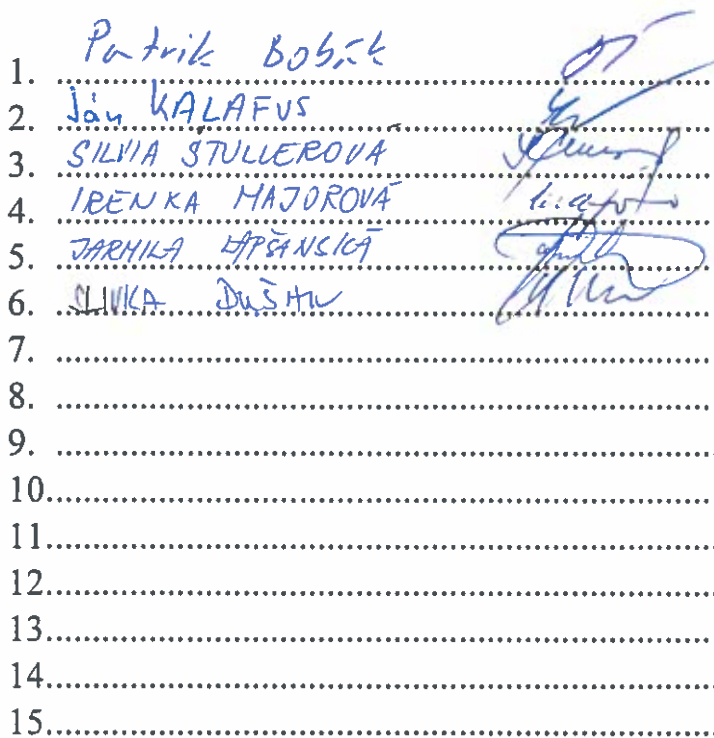 1. Patrik Bobák
2. Ján KALAFUS
3. SILVIA ŠTULLEROVÁ
4. IRENKA MAJOROVÁ
5. JARMILA LAPŠANSKÁ
6. SLIVKA DUŠAN
7.
8.
9.
10.
11.
12.
13.
14.
15.